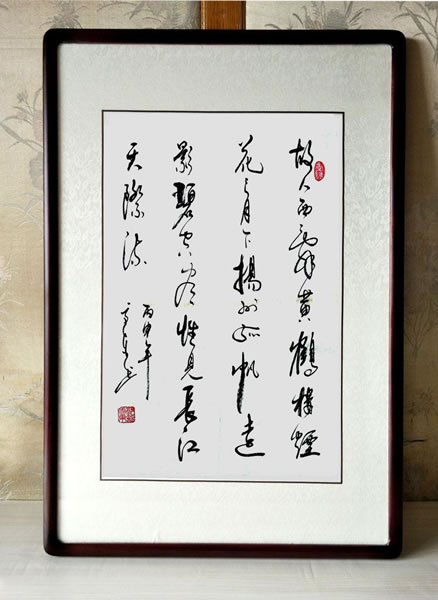 故人西辞黄鶴樓煙
花三月下揚州孤帆遠
影碧空尽惟見長江
天際流
丙申年